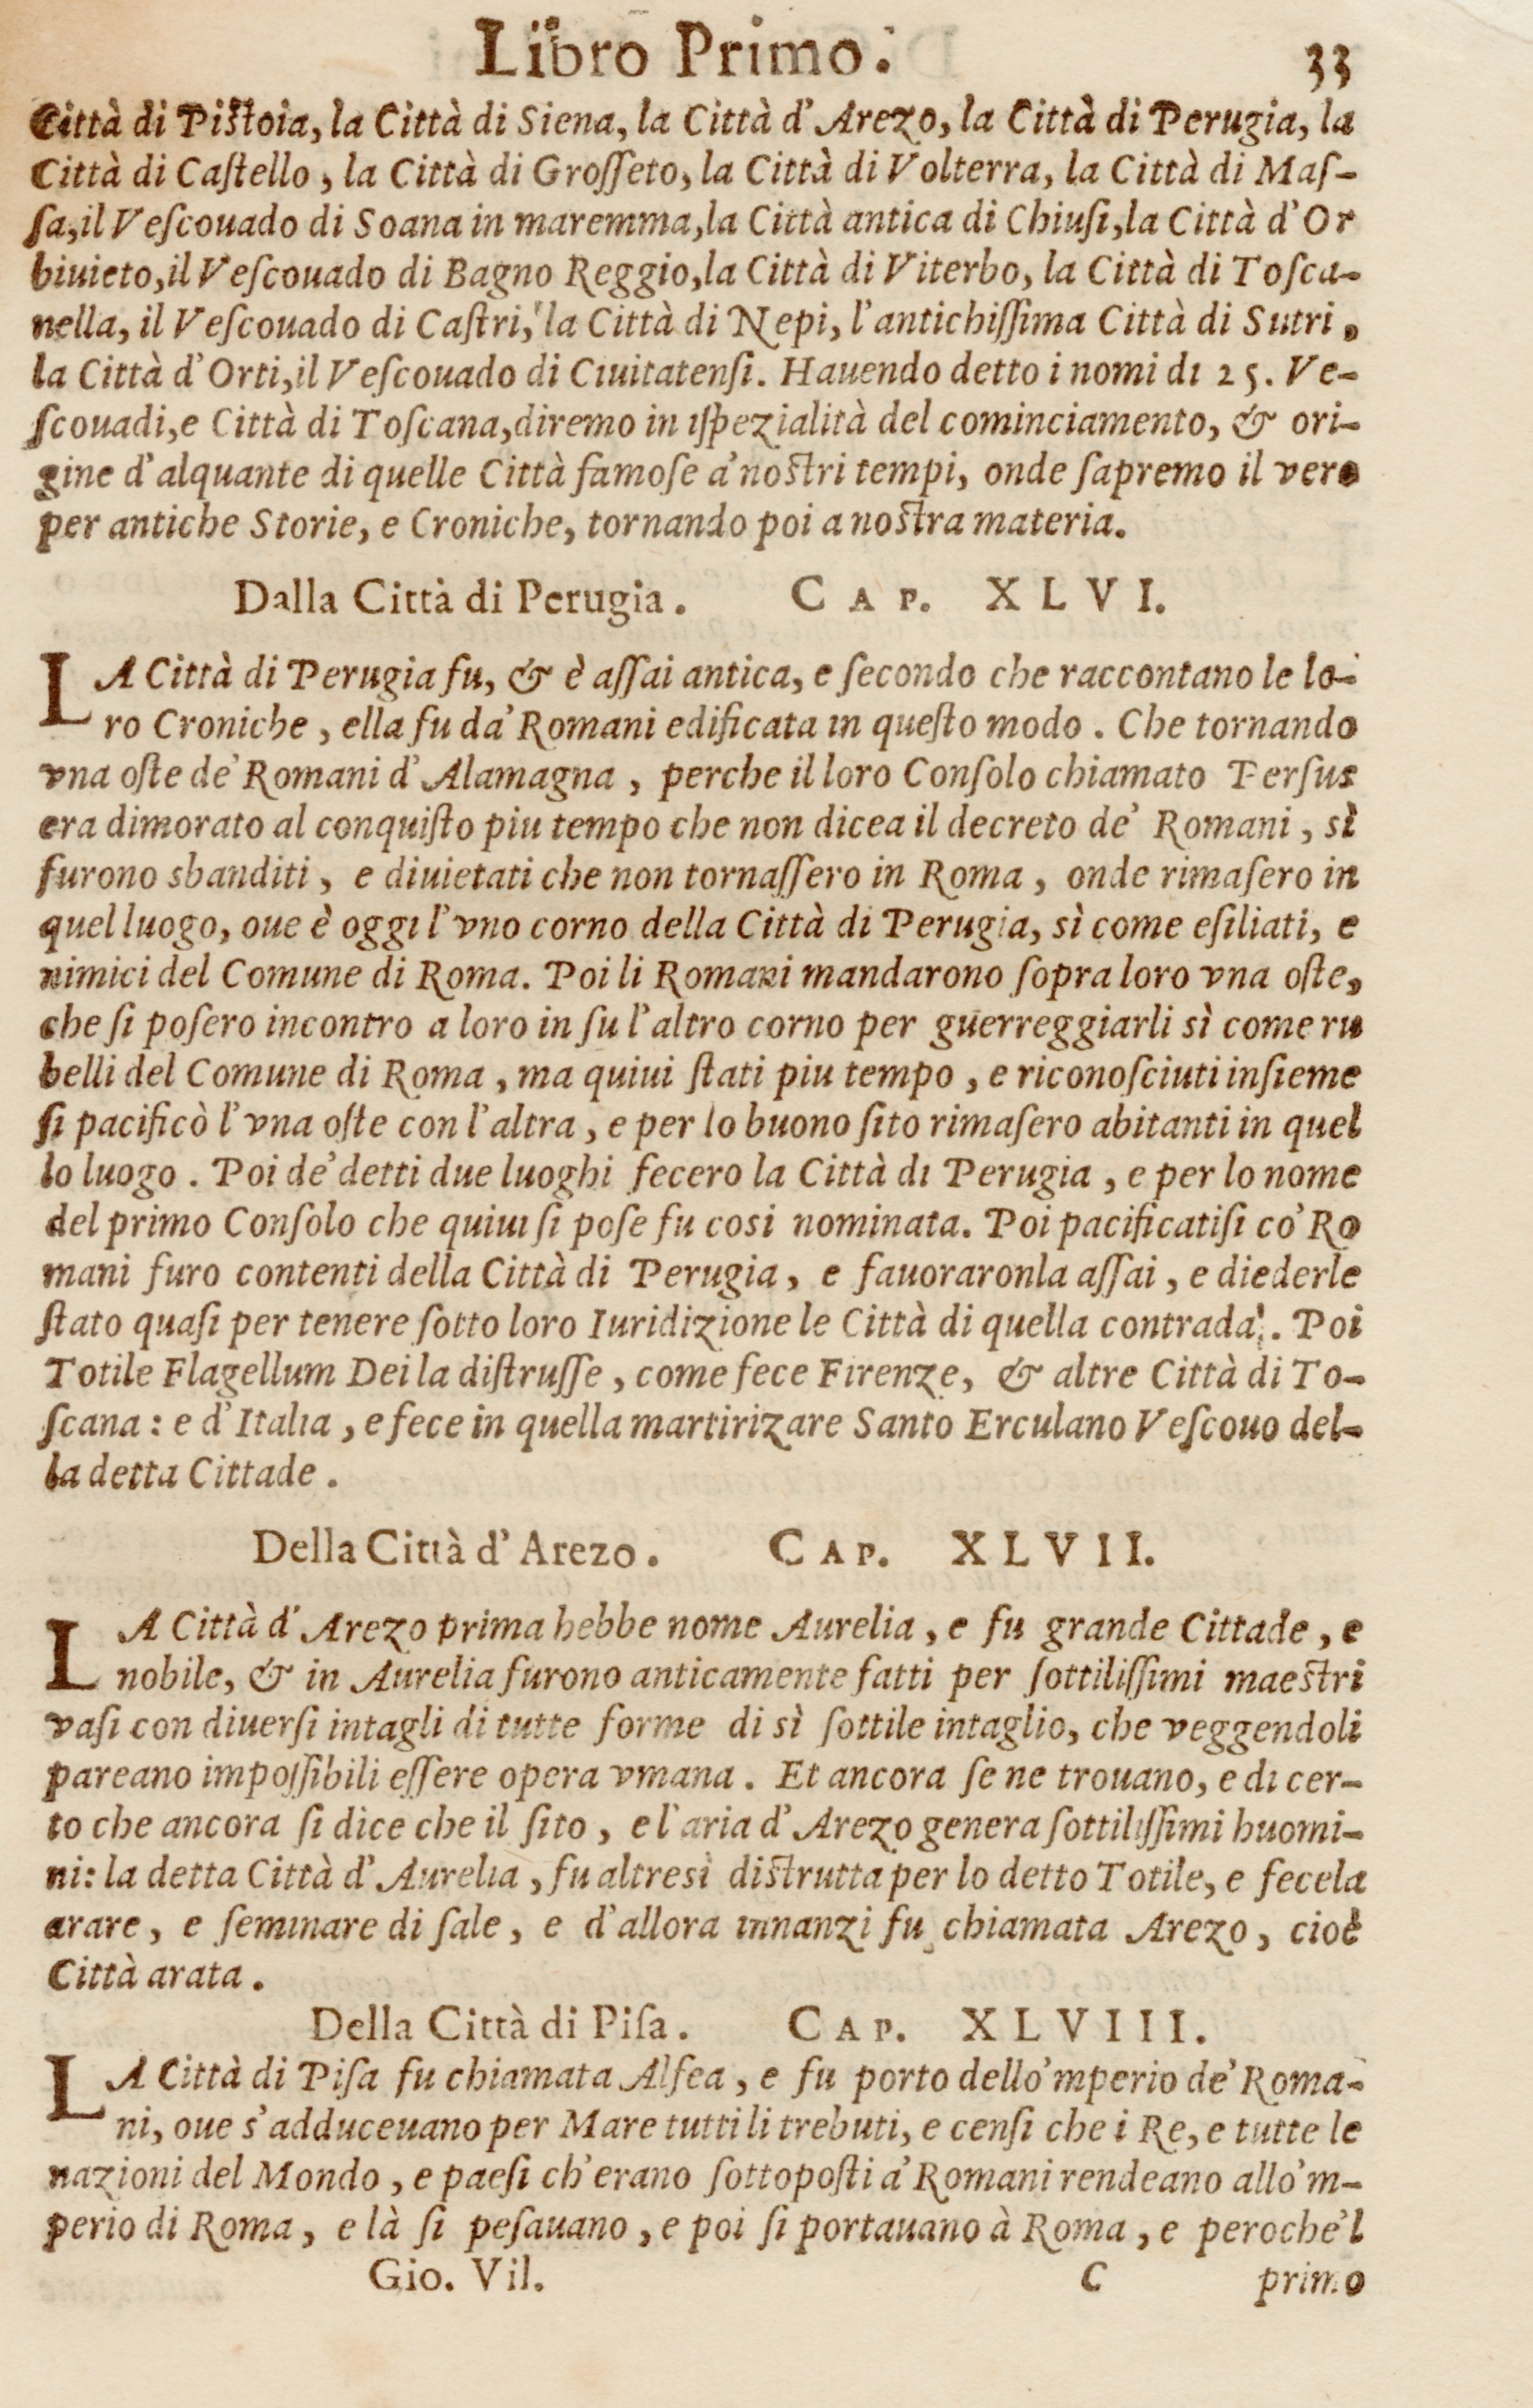 Libro Primo. 33
Città di Piſtoia, la Città di Siena, la Città d'Arezo, la Città di Perugia, la
Città di Caſtello, la Città di Groſſeto, la Città di Volterra, la Città di Maſ-
ſa, il Veſcouado di Soana in maremma, la Città antica di Chiuſi, la Città d'Or
biuieto, il Veſcouado di Bagno Reggio, la Città di Viterbo, la Città di Toſca-
nella, il Veſcouado di Caſtri, la Città di Nepi, l'antichiſſima Città di Sutri,
la Città d'Orti, il Veſcouado di Ciuitatenſi. Hauendo detto i nomi di 25. Ve-
ſcouadi, e Città di Toſcana, diremo in iſpezialità del cominciamento, & ori-
gine d'alquante di quelle Città famoſe a' noſtri tempi, onde ſapremo il vero
per antiche Storie, e Croniche, tornando poi a noſtra materia.
Dalla Città di Perugia. CAP. XLVI.
LA Città di Perugia fu, & è aſſai antica, e ſecondo che raccontano le lo-
ro Croniche, ella fu da' Romani edificata in queſto modo. Che tornando
vna oſte de' Romani d'Alamagna, perche il loro Conſolo chiamato Perſus
era dimorato al conquiſto piu tempo che non dicea il decreto de' Romani, sì
furono sbanditi, e diuietati che non tornaſſero in Roma, onde rimaſero in
quel luogo, oue è oggi l'vno corno della Città di Perugia, sì come eſiliati, e
nimici del Comune di Roma. Poi li Romani mandarono ſopra loro vna oſte,
che ſi poſero incontro a loro in ſu l'altro corno per guerreggiarli sì come ru
belli del Comune di Roma, ma quiui ſtati piu tempo, e riconoſciuti inſieme
ſi pacificò l'vna oſte con l'altra, e per lo buono ſito rimaſero abitanti in quel
lo luogo. Poi de' detti due luoghi fecero la Città di Perugia, e per lo nome
del primo Conſolo che quiui ſi poſe fu cosi nominata. Poi pacificatiſi co' Ro
mani furo contenti della Città di Perugia, e fauoraronla aſſai, e diederle
ſtato quaſi per tenere ſotto loro Iuridizione le Città di quella contrada. Poi
Totile Flagellum Dei la diſtruſſe, come fece Firenze, & altre Città di To-
ſcana: e d'Italia, e fece in quella martirizare Santo Erculano Veſcouo del-
la detta Cittade.
Della Città d'Arezo. CAP. XLVII.
LA Città d'Arezo prima hebbe nome Aurelia, e fu grande Cittade, e
nobile, & in Aurelia furono anticamente fatti per ſottiliſſimi maeſtri
vaſi con diuerſi intagli di tutte forme di sì ſottile intaglio, che veggendoli
pareano impoſſibili eſſere opera vmana. Et ancora ſe ne trouano, e di cer-
to che ancora ſi dice che il ſito, e l'aria d'Arezo genera ſottiliſſimi huomi-
ni: la detta Città d'Aurelia, fu altresì diſtrutta per lo detto Totile, e fecela
arare, e ſeminare di ſale, e d'allora innanzi fu chiamata Arezo, cioè
Città arata.
Della Città di Piſa. CAP. XLVIII.
LA Città di Piſa fu chiamata Alfea, e fu porto dello'mperio de' Roma-
ni, oue s'adduceuano per Mare tutti li trebuti, e cenſi che i Re, e tutte le
nazioni del Mondo, e paeſi ch'erano ſottopoſti a' Romani rendeano allo'm-
perio di Roma, e là ſi peſauano, e poi ſi portauano à Roma, e peroche'l
Gio. Vil. C primo